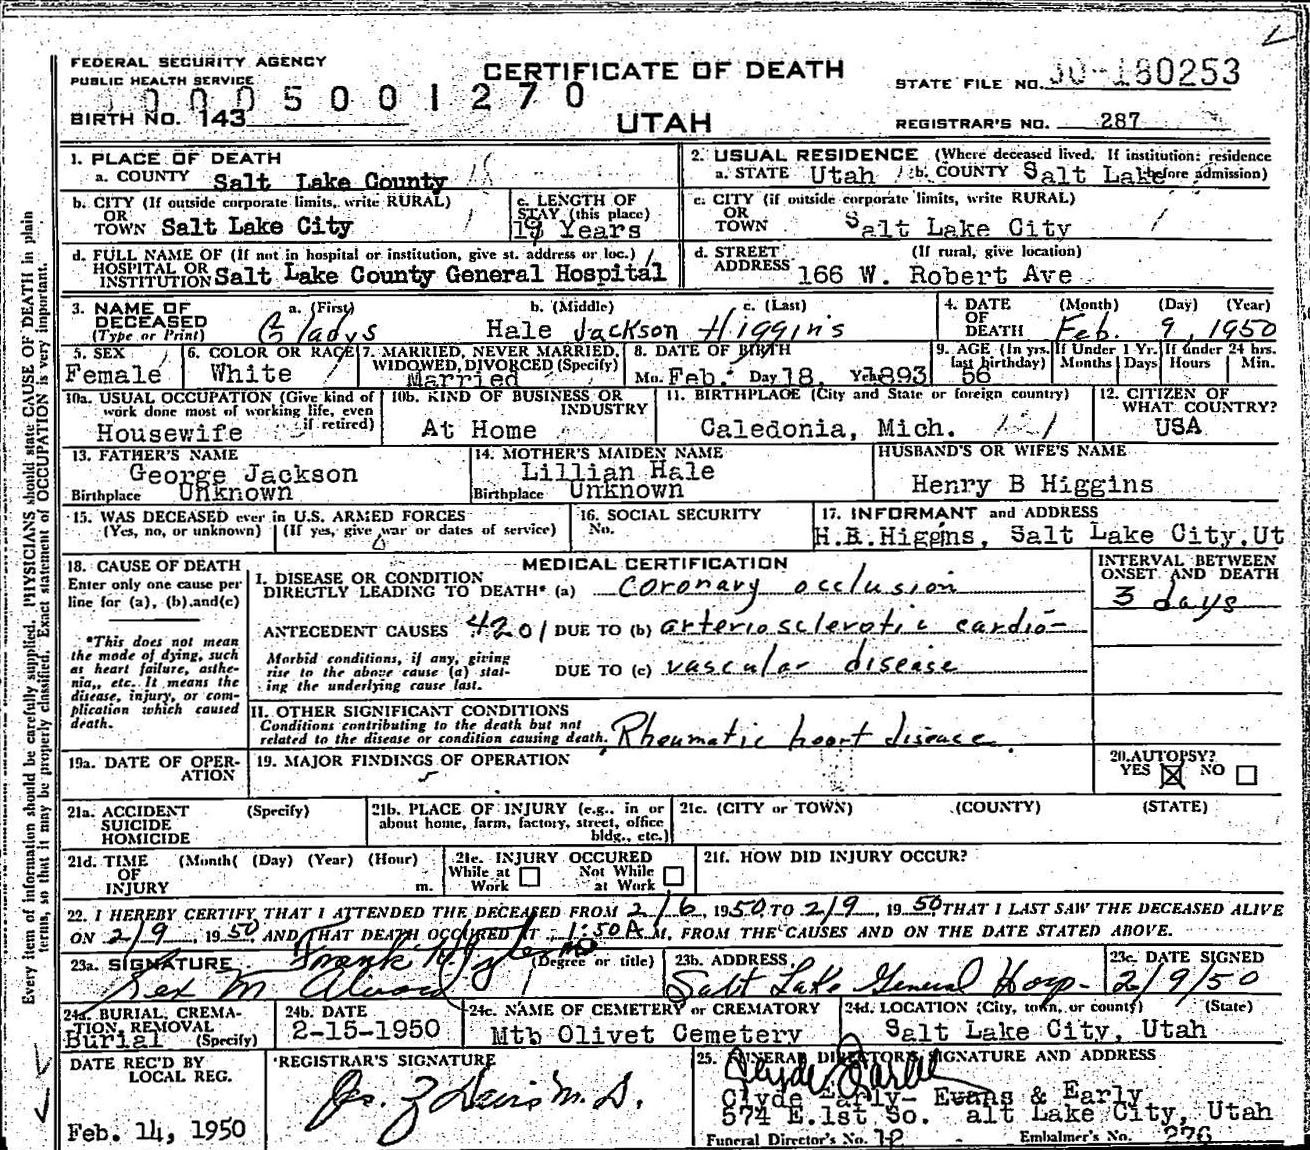 FEDERAL SECURITY AGENCY
PUBLIC HEALTH SERVICE
CERTIFICATE OF DEATH
STATE FILE NO. 50-180253
10005001270
BIRTH NO. 143
UTAH
REGISTRAR'S NO. 287
Every item of information should be carefully supplied. PHYSICIANS should state CAUSE OF DEATH in plain
terms, so that it may be properly classified. Exact statement of OCCUPATION is very important.
1. PLACE OF DEATH
a. COUNTY Salt Lake County
2. USUAL RESIDENCE (Where deceased lived. If institution: residence
a. STATE Utah b. COUNTY Salt Lake before admission)
b. CITY (If outside corporate limits, write RURAL)
OR
TOWN Salt Lake City
c. LENGTH OF
STAY (this place)
Years
c. CITY (if outside corporate limits, write RURAL)
OR
TOWN Salt Lake City
d. FULL NAME OF (If not in hospital or institution, give st. address or loc.)
HOSPITAL OR
INSTITUTION Salt Lake County General Hospital
d. STREET (If rural, give location)
ADDRESS 166 W. Robert Ave
3. NAME OF DECEASED
(Type or Print)
a. (First) b. (Middle) c. (Last)
Gladys Hale Jackson Higgins
4. DATE OF DEATH (Month) (Day) (Year)
Feb. 9, 1950
5. SEX
Female
6. COLOR OR RACE
White
7. MARRIED, NEVER MARRIED,
WIDOWED, DIVORCED (Specify)
Married
8. DATE OF BIRTH
Mo. Feb. Day 18, Yr. 1893
9. AGE (In yrs. last birthday)
56
If Under 1 Yr. Months Days
If under 24 hrs. Hours Min.
10a. USUAL OCCUPATION (Give kind of
work done most of working life, even
if retired)
Housewife
10b. KIND OF BUSINESS OR
INDUSTRY
At Home
11. BIRTHPLACE (City and State or foreign country)
Caledonia, Mich. 121
12. CITIZEN OF
WHAT COUNTRY?
USA
13. FATHER'S NAME
George Jackson
Birthplace Unknown
14. MOTHER'S MAIDEN NAME
Lillian Hale
Birthplace Unknown
HUSBAND'S OR WIFE'S NAME
Henry B Higgins
15. WAS DECEASED ever in U.S. ARMED FORCES
(Yes, no, or unknown) (If yes, give war or dates of service)
16. SOCIAL SECURITY
No.
17. INFORMANT and ADDRESS
Higgins, Salt Lake City,Ut
18. CAUSE OF DEATH
Enter only one cause per
line for (a), (b),and(c)
*This does not mean
the mode of dying, such
as heart failure, asthe-
nia,, etc. It means the
disease, injury, or com-
plication which caused
death.
MEDICAL CERTIFICATION
I. DISEASE OR CONDITION
DIRECTLY LEADING TO DEATH* (a) coronary occlusion
ANTECEDENT CAUSES 4201 DUE TO (b) arteriosclerotic cardio-
Morbid conditions, if any, giving
rise to the above cause (a) stat-
ing the underlying cause last.
DUE TO (c) vascular disease
INTERVAL BETWEEN
ONSET AND DEATH
3 days
II. OTHER SIGNIFICANT CONDITIONS
Conditions contributing to the death but not
related to the disease or condition causing death. Rheumatic heart disease
19a. DATE OF OPER-
ATION
19. MAJOR FINDINGS OF OPERATION
20. AUTOPSY?
YES ☒ NO ☐
21a. ACCIDENT (Specify)
SUICIDE
HOMICIDE
21b. PLACE OF INJURY (e.g., in or
about home, farm, factory, street, office
bldg., etc.)
21c. (CITY or TOWN) (COUNTY) (STATE)
21d. TIME (Month( (Day) (Year) (Hour)
OF
INJURY m.
21e. INJURY OCCURED
While at Work ☐ Not While at Work ☐
21f. HOW DID INJURY OCCUR?
22. I HEREBY CERTIFY THAT I ATTENDED THE DECEASED FROM 2/6, 1950, TO 2/9, 1950 THAT I LAST SAW THE DECEASED ALIVE
ON 2/9, 1950, AND THAT DEATH OCCURED AT 1:50 A M, FROM THE CAUSES AND ON THE DATE STATED ABOVE.
23a. SIGNATURE (Degree or title)
Frank H. Tyler MD
Rex M Alvord
23b. ADDRESS
Salt Lake General Hosp-
23c. DATE SIGNED
2/9/50
24a. BURIAL, CREMA-
TION, REMOVAL
Burial (Specify)
24b. DATE
2-15-1950
24c. NAME OF CEMETERY or CREMATORY
Mtb Olivet Cemetery
24d. LOCATION (City, town, or county) (State)
Salt Lake City, Utah
DATE REC'D BY
LOCAL REG.
Feb. 14, 1950
REGISTRAR'S SIGNATURE
25. FUNERAL DIRECTOR'S SIGNATURE AND ADDRESS
Clyde Early- Evans & Early
574 E.1st So. alt Lake City, Utah
Funeral Director's No. 12 Embalmer's No. 276